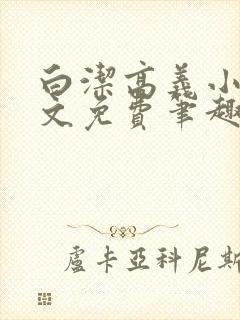 白潔高義小
文免費筆趣
盧卡亞科尼斯